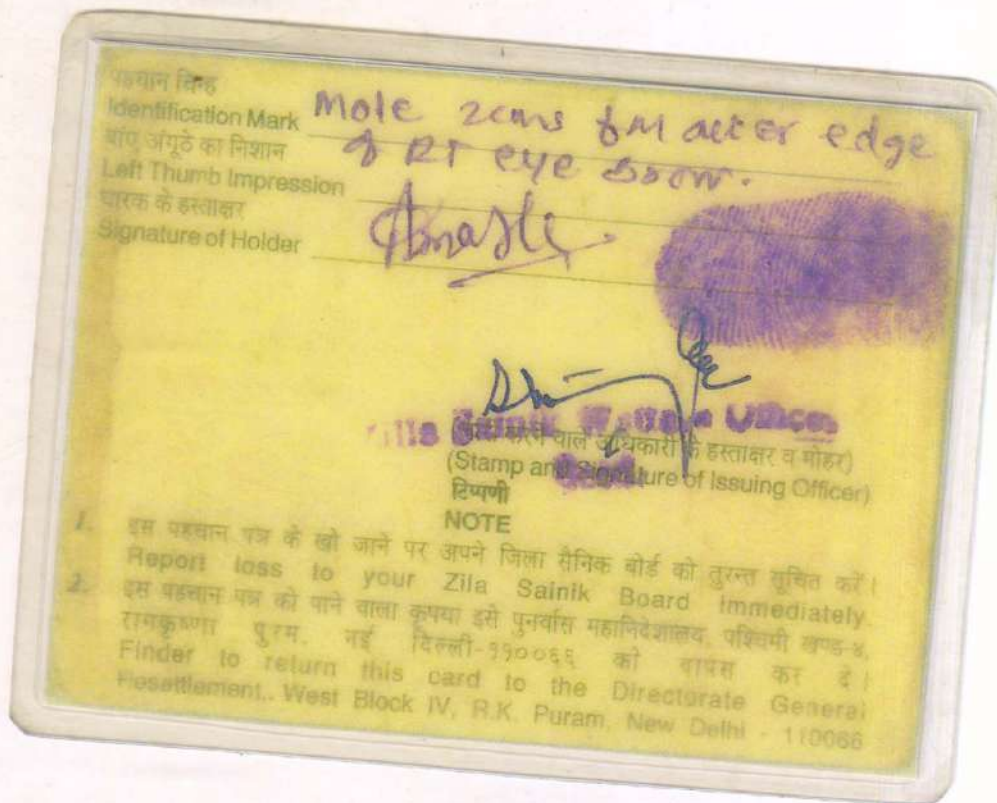 पहचान चिन्ह
Identification Mark Mole 2cms fM outer edge
बांए अंगूठे का निशान of RT eye brow.
Left Thumb Impression
धारक के हस्ताक्षर
Signature of Holder
Zila Sainik Welfare Officer
(जारी करने वाले अधिकारी के हस्ताक्षर व मोहर)
(Stamp and Signature of Issuing Officer)
टिप्पणी
NOTE
1. इस पहचान पत्र के खो जाने पर अपने जिला सैनिक बोर्ड को तुरन्त सूचित करें।
Report loss to your Zila Sainik Board Immediately.
2. इस पहचान पत्र को पाने वाला कृपया इसे पुनर्वास महानिदेशालय, पश्चिमी खण्ड-४,
रामकृष्णा पुरम, नई दिल्ली-११००६६ को वापस कर दें।
Finder to return this card to the Directorate General
Resettlement., West Block IV, R.K. Puram, New Delhi - 110066